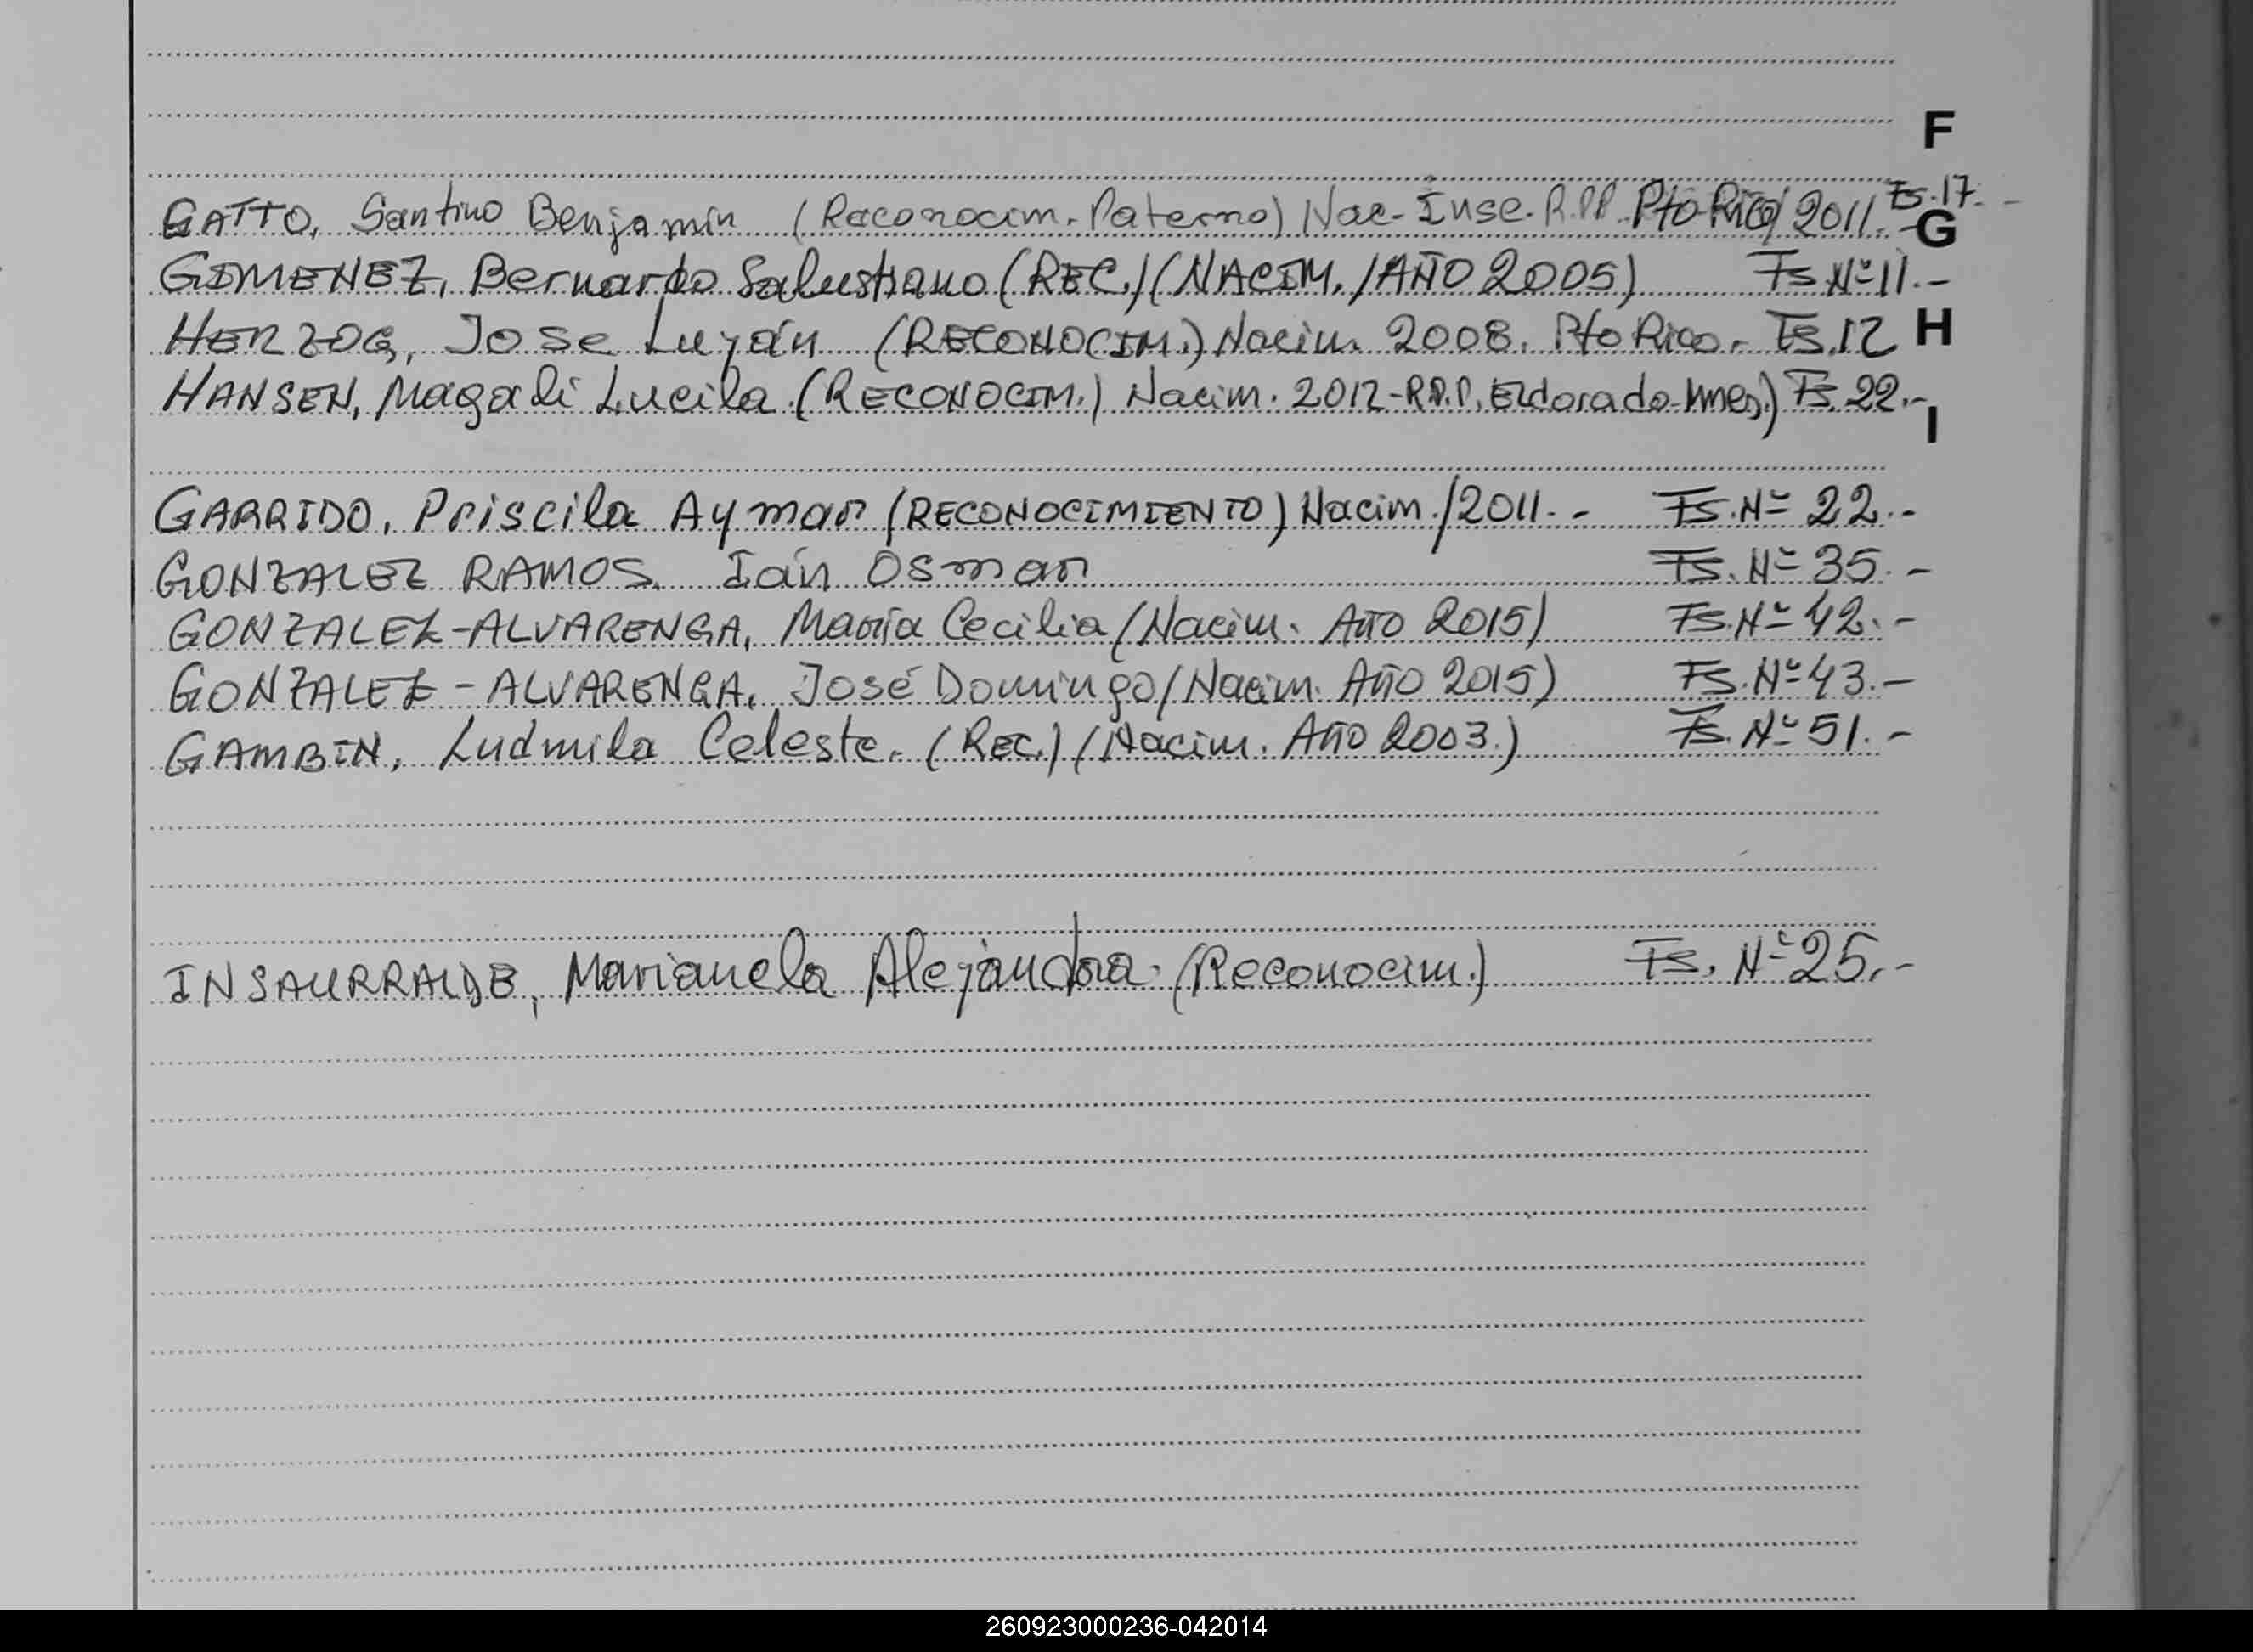 F
GATTO, Santino Benjamin (Reconocim. Paterno) Nac. Insc. R.P.P. Pto Rico/2011. Fs. 17.-
G
GIMENEZ, Bernardo Salustiano (REC.) (NACIM./AÑO 2005) Fs. Nº 11.-
HERZOG, Jose Luján (RECONOCIM.) Nacim. 2008. Pto Rico. Fs. 12
H
HANSEN, Magali Lucila (RECONOCIM.) Nacim. 2012-R.P.P. Eldorado-Mnes.) Fs. 22.-
I
GARRIDO, Priscila Aymar (RECONOCIMIENTO) Nacim./2011.- Fs. Nº 22.-
GONZALEZ RAMOS, Ián Osmar Fs. Nº 35.-
GONZALEZ-ALVARENGA, María Cecilia (Nacim. Año 2015) Fs. Nº 42.-
GONZALEZ-ALVARENGA, José Domingo (Nacim. Año 2015) Fs. Nº 43.-
GAMBIN, Ludmila Celeste. (REC.) (Nacim. Año 2003.) Fs. Nº 51.-
INSAURRALDE, Marianela Alejandra. (Reconocim.) Fs. Nº 25.-
260923000236-042014